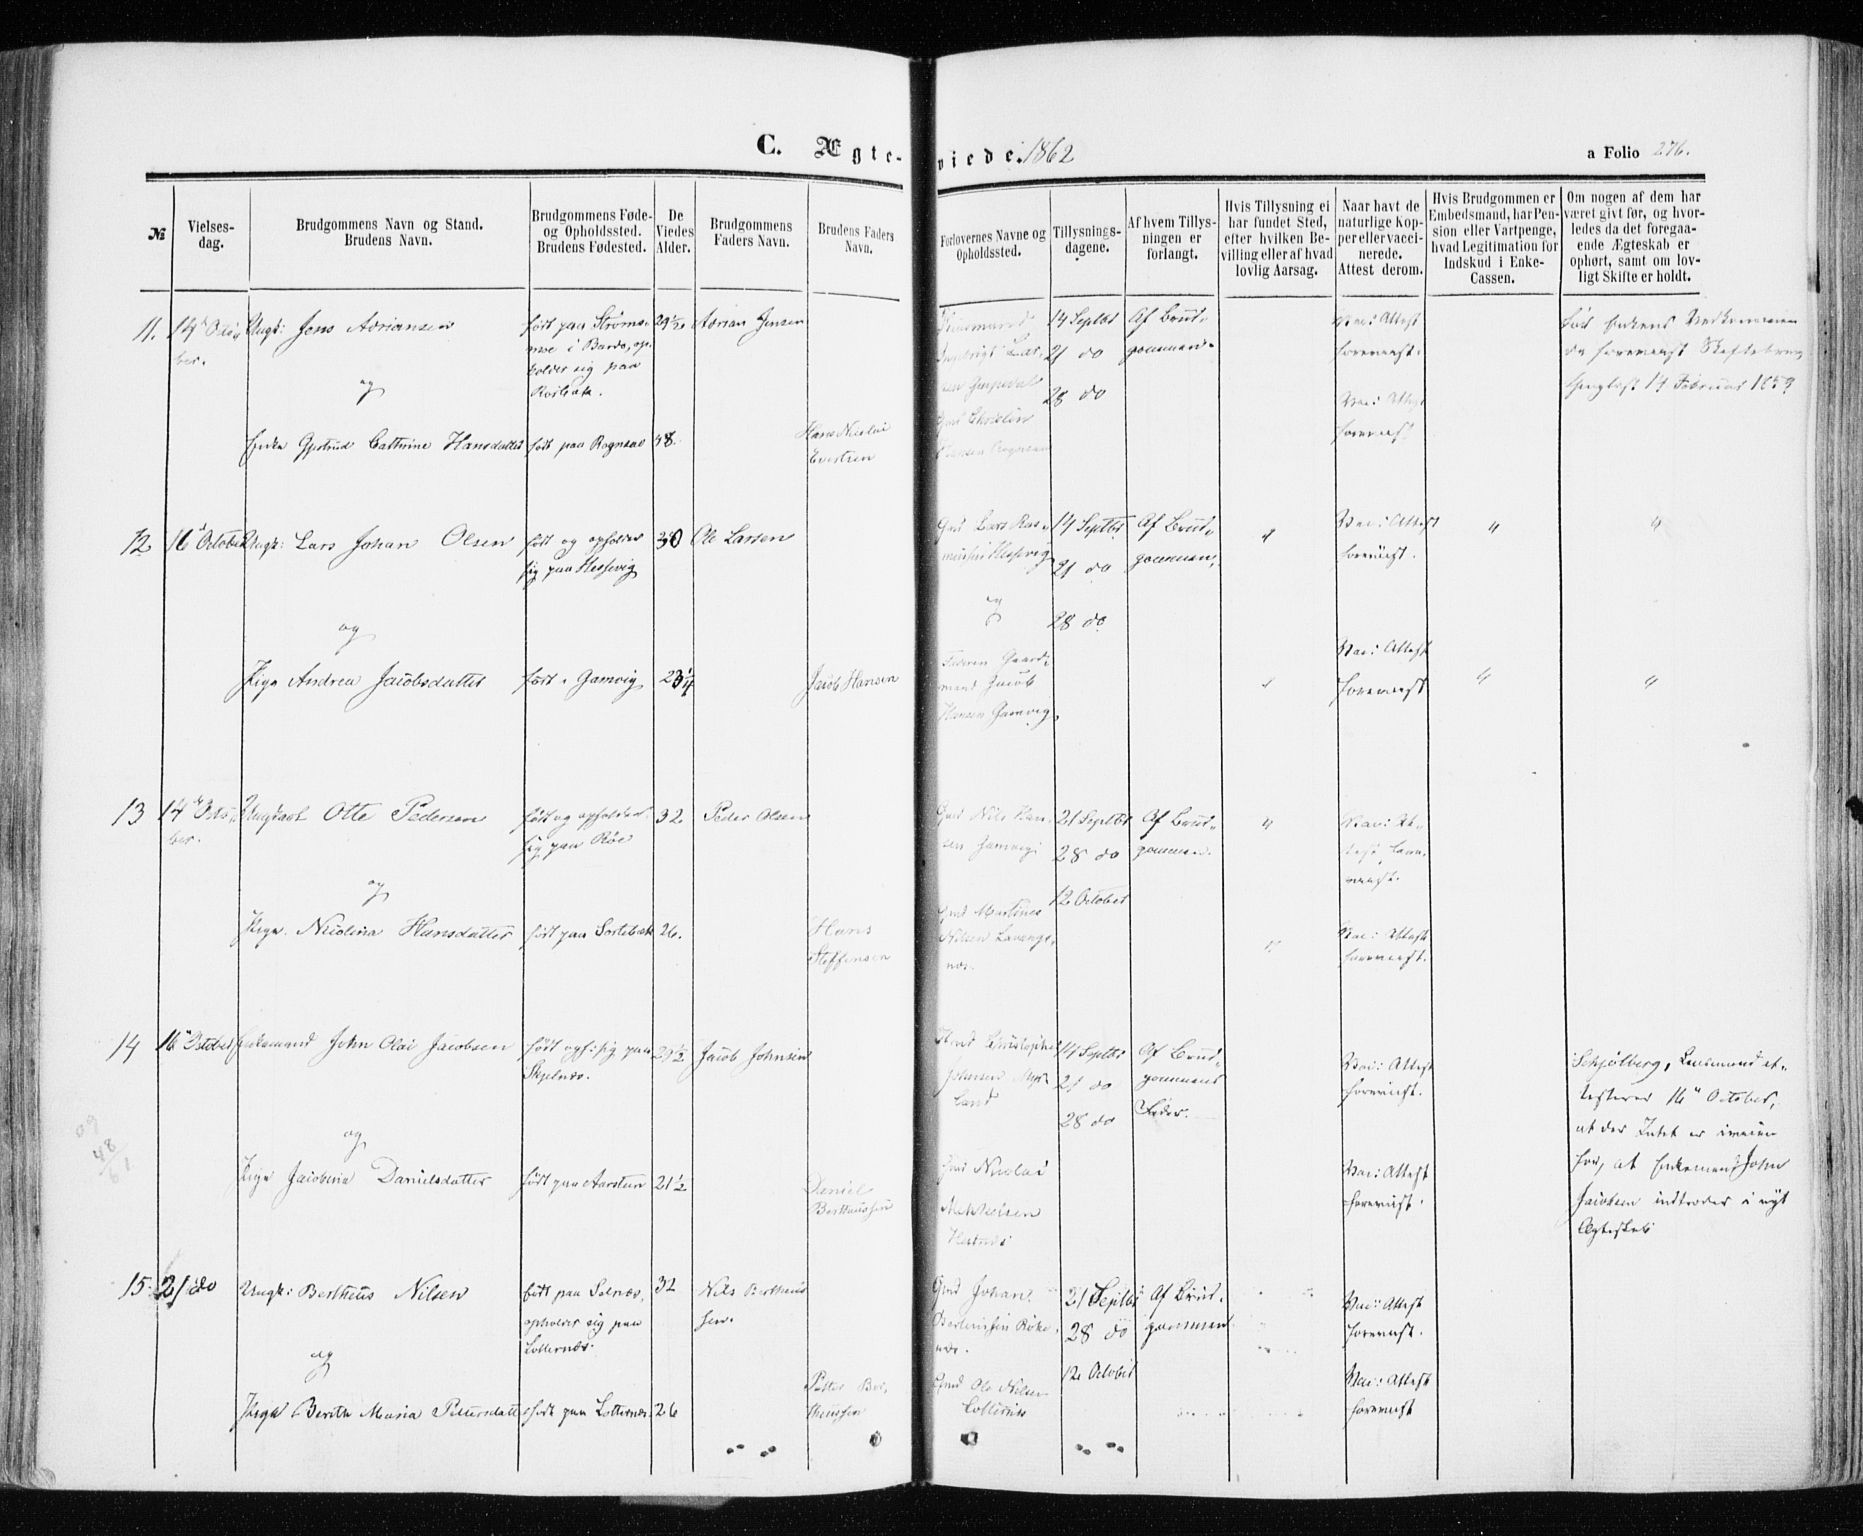 C. Ægte-viede. 1862
a Folio 276.
№
Vielses-
dag.
Brudgommens Navn og Stand.
Brudens Navn.
Brudgommens Føde-
og Opholdssted.
Brudens Fødested.
De
Viedes
Alder.
Brudgommens
Faders Navn.
Brudens Faders
Navn.
Forlovernes Navne og
Opholdssted.
Tillysnings-
dagene.
Af hvem Tillys-
ningen er
forlangt.
Hvis Tillysning ei
har fundet Sted,
efter hvilken Be-
villing eller af hvad
lovlig Aarsag.
Naar havt de
naturlige Kop-
per eller vacci-
nerede.
Attest derom.
Hvis Brudgommen er
Embedsmand, har Pen-
sion eller Vartpenge,
hvad Legitimation for
Indskud i Enke-
Cassen.
Om nogen af dem har
været givt før, og hvor-
ledes da det foregaa-
ende Ægteskab er
ophørt, samt om lov-
ligt Skifte er holdt.
11.
14 Octo-
ber.
Ungk: Jens Adriansen
og
Enke Gjertrud Cathrine Hansdatter
født paa Strøms-
moe i Bardo, op-
holder sig paa
født paa Rognsaa
29½
48.
Adrian Jensen
Hans Nicolai
14 Septbr
21 do
28 do
Af Brud-
gommen.
Vac: Attest
foreviist.
Vac: Attest
foreviist.
12
16 October
Ungk: Lars Johan Olsen
og
Pige Andrea Jacobsdatter
født og opholder
sig paa Hessevig
født i Gamvig
30
23¼
Ole Larsen
Jacob Hansen
Gmd Lars Ras-
mussen Hessvig
og
Faderen Gaard-
mand Jacob
Hansen Gamvig
14 Septbr
21 do
28 do
Af Brud-
gommen.
Vac: Attest
foreviist.
Vac: Attest
foreviist
13
14 Octo-
ber.
Ungkarl Otte Pedersen
og
Pige Nicolina Hansdatter
født og opholder
sig paa Røe
født paa Sortebæk
32
26.
Peder Olsen
Hans
Steffensen
Gmd Nils Han-
sen Gamvig
Gmd Martines
Nilsen Lavangs-
næs.
21 Septbr
28 do
12 October
Af Brud-
gommen.
Vac: At-
test fore-
viist.
Vac: Attest
foreviist.
14
16 October
Enkemand John Olai Jacobsen
og
Pige Jacobina Danielsdatter
født oph: sig paa
Skjelnæs.
født paa Aarsteen
29½
21½
Jacob Johnsen
Daniel
Bertheussen
Christopher
Johnsen
Gmd Nicolai
Mikkelsen
Hestnæs
14 Septbr
21 do
28 do
Af Brud-
gommens
Fader.
Vac: Attest
foreviist.
Vac: Attest
foreviist.
Schjølberg, Lensmand at-
testerer 16 October,
at der Intet er iveien
for, at Enkemand John
Jacobsen indtræder i nyt
Ægteskab
48
61
15.
21 do
Ungk: Bertheus Nilsen
og
Pige Berith Maria Pettersdatter
født paa Selnæs,
opholder sig paa
Lotternæs.
født paa Lotternæs.
32
26
Nils Bertheus
sen.
Petter Ber-
theussen
Gmd Johan
Gmd Ole Nilsen
21 Septbr
28 do
12 October
Af Brud-
gommen
Vac: Attest
foreviist.
Vac: Attest
foreviist